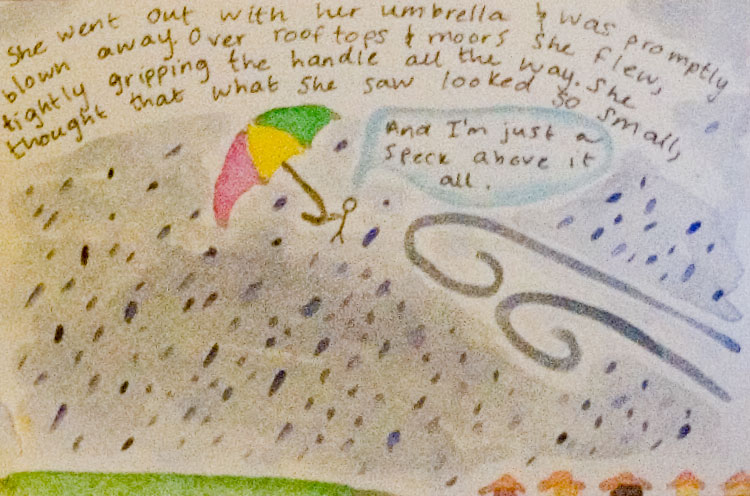 She went out with her umbrella & was promptly
blown away. Over rooftops & moors she flew,
tightly gripping the handle all the way. She
thought that what she saw looked so small,
And I'm just a
speck above it
all.